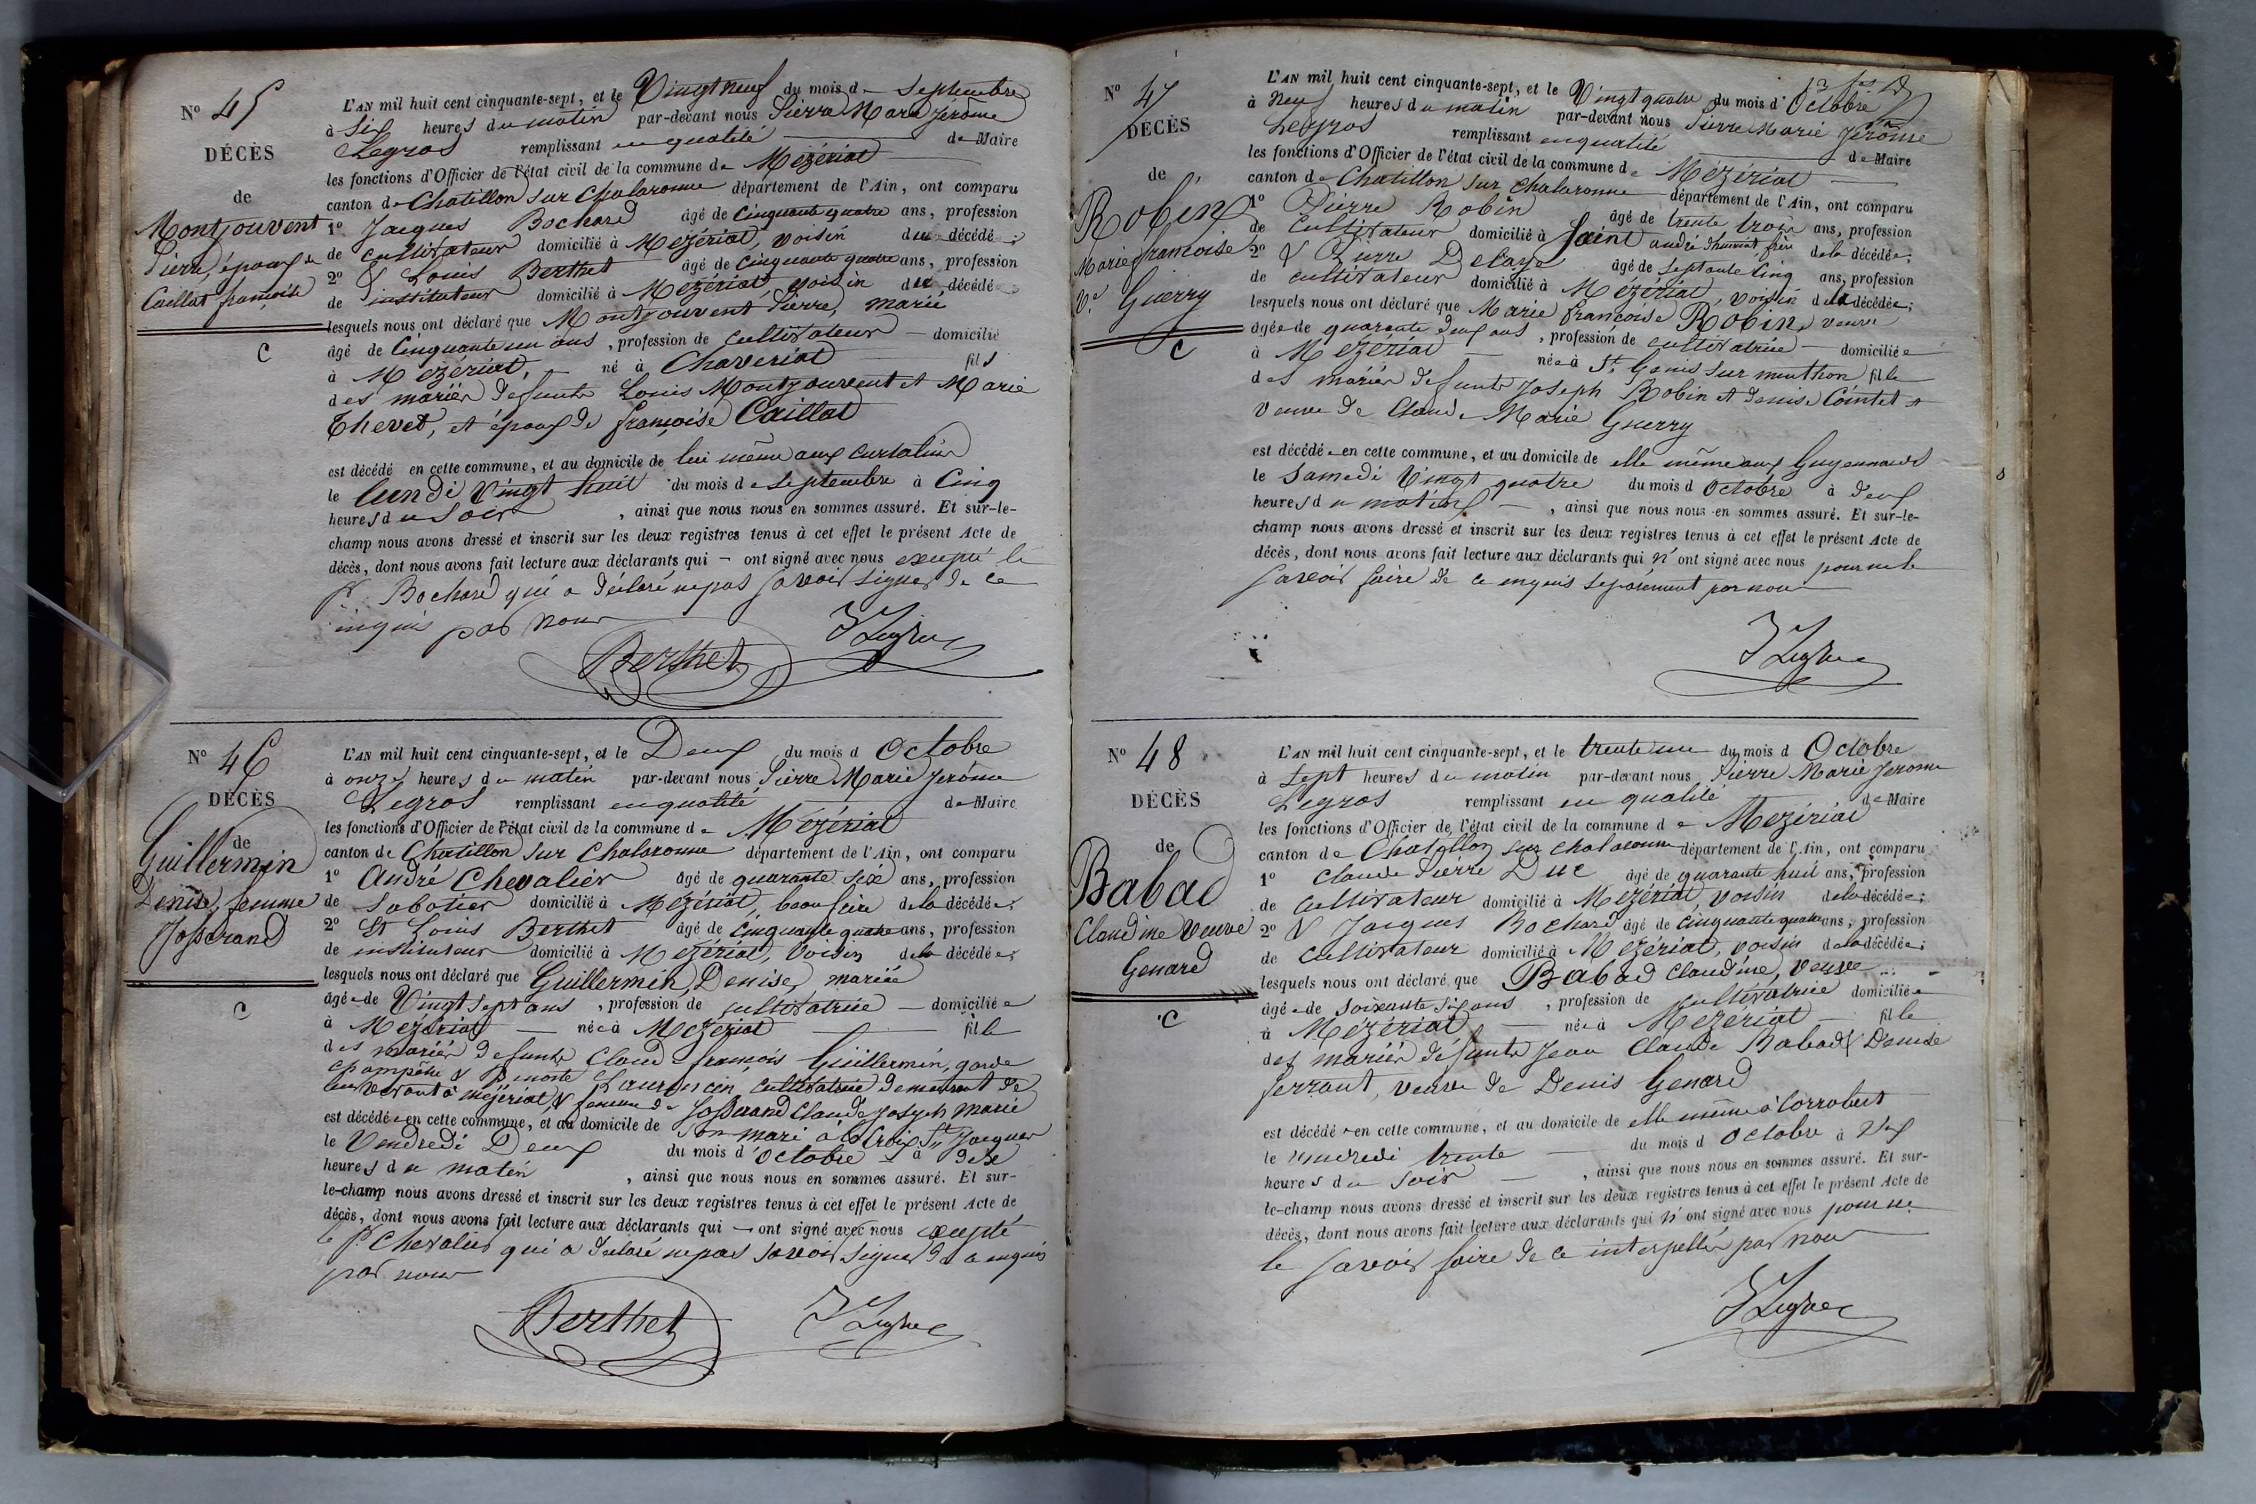 N° 45
DÉCÈS
de
Montjouvent
Pierre, époux de
Caillat françoise
C
L'AN mil huit cent cinquante-sept, et le Vingt neuf du mois de Septembre
à Six heures du matin par-devant nous Pierre Marie Jérôme
Legros remplissant en qualité de Maire
les fonctions d'Officier de l'état civil de la commune de Mézériat
canton de Chatillon sur Chalaronne département de l'Ain, ont comparu
1° Jacques Bochard âgé de Cinquante quatre ans, profession
de cultivateur domicilié à Mézériat, voisin du décédé;
2° & Louis Berthet âgé de Cinquante quatre ans, profession
de instituteur domicilié à Mézériat, voisin du décédé
lesquels nous ont déclaré que Montjouvent Pierre, marié
âgé de Cinquante un ans, profession de Cultivateur domicilié
à Mézériat, né à Chaveriat fils
des mariés défunts Louis Montjouvent et Marie
Thevet, et époux de françoise Caillat
est décédé en cette commune, et au domicile de lui même aux
le lundi Vingt huit du mois de Septembre à Cinq
heures du Soir, ainsi que nous nous en sommes assuré. Et sur-le-
champ nous avons dressé et inscrit sur les deux registres tenus à cet effet le présent Acte de
décès, dont nous avons fait lecture aux déclarants qui ont signé avec nous excepté le
Sr Bochard qui a déclaré ne pas savoir signer de ce
inquis par nous
Berthet JLegros
N° 46
DÉCÈS
de
Guillermin
Denise, femme
Josserand
C
L'AN mil huit cent cinquante-sept, et le Deux du mois d Octobre
à onze heures du matin par-devant nous Pierre Marie Jérôme
Legros remplissant en qualité de Maire
les fonctions d'Officier de l'état civil de la commune de Mézériat
canton de Chatillon sur Chalaronne département de l'Ain, ont comparu
1° André Chevalier âgé de quarante six ans, profession
de Sabotier domicilié à Mézériat, beau frère de la décédée;
2° Et Louis Berthet âgé de Cinquante quatre ans, profession
de instituteur domicilié à Mézériat, Voisin de la décédée;
lesquels nous ont déclaré que Guillermin Denise, mariée
âgée de Vingt sept ans, profession de cultivatrice domiciliée
à Mézériat née à Mézériat fille
des mariés défunts Claude françois Guillermin, garde
champêtre & Benoite Laurencin, Cultivatrice demeurant de
son vivant à Mézériat, & femme de Josserand Claude Joseph Marie
est décédée en cette commune, et au domicile de son mari à la Croix St Jacques
le Vendredi Deux du mois d'Octobre à
heures du matin, ainsi que nous nous en sommes assuré. Et sur-
le-champ nous avons dressé et inscrit sur les deux registres tenus à cet effet le présent Acte de
décès, dont nous avons fait lecture aux déclarants qui ont signé avec nous excepté
le Sr Chevalier qui a déclaré ne pas savoir signer de ce enquis
par nous
Berthet JLegros
N° 47
DÉCÈS
de
Robin
Marie françoise
Ve Guerry
C
L'AN mil huit cent cinquante-sept, et le Vingt quatre du mois d'Octobre
à Neuf heures du matin par-devant nous Pierre Marie Jérôme
Legros remplissant en qualité de Maire
les fonctions d'Officier de l'état civil de la commune de Mézériat
canton de Chatillon sur Chalaronne département de l'Ain, ont comparu
1° Pierre Robin âgé de trente trois ans, profession
de Cultivateur domicilié à Saint andré d'huiriat frère de la décédée;
2° & Pierre Delaye âgé de Septante Cinq ans, profession
de cultivateur domicilié à Mézériat, voisin de la décédée;
lesquels nous ont déclaré que Marie françoise Robin, veuve
âgée de quarante deux ans, profession de cultivatrice domiciliée
à Mézériat née à St Genis sur menthon fille
des mariés défunts Joseph Robin et denise Cointet &
Veuve de Claude Marie Guerry
est décédée en cette commune, et au domicile de elle même aux Guyennards
le Samedi Vingt quatre du mois d Octobre à deux
heures du matin, ainsi que nous nous en sommes assuré. Et sur-le-
champ nous avons dressé et inscrit sur les deux registres tenus à cet effet le présent Acte de
décès, dont nous avons fait lecture aux déclarants qui n'ont signé avec nous pour ne le
savoir faire de ce enquis séparément par nous
JLegros
N° 48
DÉCÈS
de
Babad
Claudine Veuve
Genard
C
L'AN mil huit cent cinquante-sept, et le trente un du mois d Octobre
à Sept heures du matin par-devant nous Pierre Marie Jerome
Legros remplissant en qualité de Maire
les fonctions d'Officier de l'état civil de la commune de Mézériat
canton de Chatillon sur chalaronne département de l'Ain, ont comparu
1° Claude Pierre Duc âgé de quarante huit ans, profession
de Cultivateur domicilié à Mézériat, voisin de la décédée;
2° & Jacques Bochard âgé de Cinquante quatre ans, profession
de Cultivateur domicilié à Mézériat, voisin de la décédée;
lesquels nous ont déclaré que Babad Claudine, Veuve
âgée de Soixante six ans, profession de Cultivatrice domiciliée
à Mézériat née à Mézériat fille
des mariés défunts Jean Claude Babad & Denise
ferrant, veuve de Denis Genard
est décédée en cette commune, et au domicile de elle même à Corrobert
le Vendredi trente du mois d Octobre à
heures du Soir, ainsi que nous nous en sommes assuré. Et sur-
le-champ nous avons dressé et inscrit sur les deux registres tenus à cet effet le présent Acte de
décès, dont nous avons fait lecture aux déclarants qui n'ont signé avec nous pour ne
le savoir faire de ce interpellés par nous
JLegros